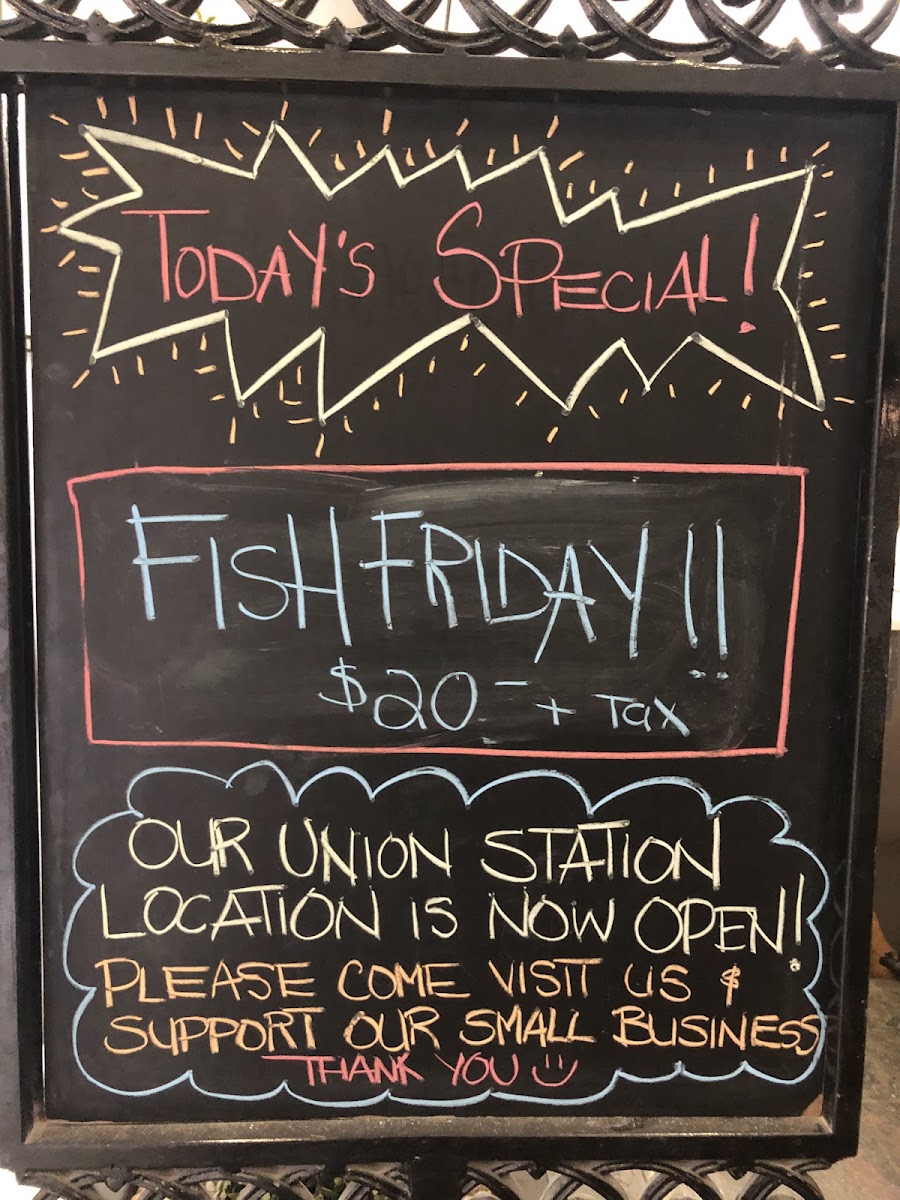 TODAY'S SPECIAL!
FISH FRIDAY!!
$20- + Tax
OUR UNION STATION
LOCATION IS NOW OPEN!
PLEASE COME VISIT US &
SUPPORT OUR SMALL BUSINESS
THANK YOU :)